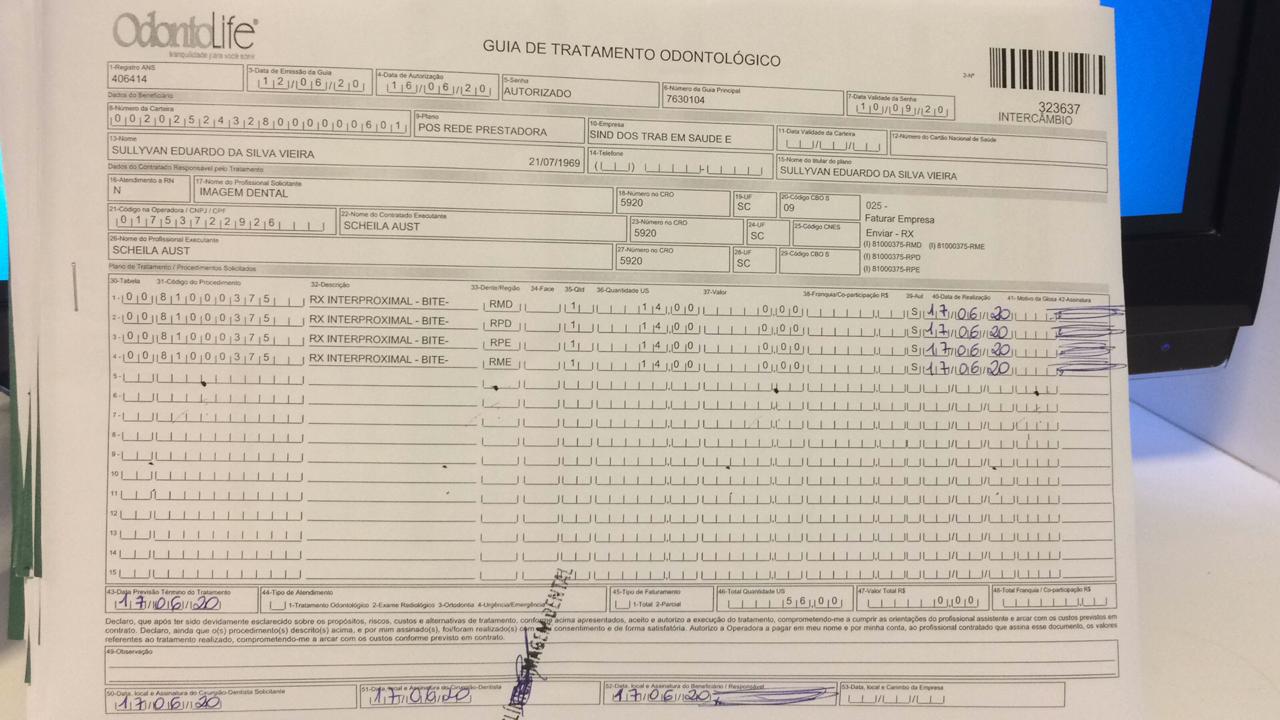 OdontoLife®
tranquilidade para você sorrir
GUIA DE TRATAMENTO ODONTOLÓGICO
2-Nº
323637
INTERCÂMBIO
1-Registro ANS
406414
3-Data de Emissão da Guia
12/06/20
4-Data de Autorização
16/06/20
5-Senha
AUTORIZADO
6-Número da Guia Principal
7630104
7-Data Validade da Senha
10/09/20
Dados do Beneficiário
8-Número da Carteira
00202524328000000601
9-Plano
POS REDE PRESTADORA
10-Empresa
SIND DOS TRAB EM SAUDE E
11-Data Validade da Carteira
12-Número do Cartão Nacional de Saúde
13-Nome
SULLYVAN EDUARDO DA SILVA VIEIRA 21/07/1969
14-Telefone
15-Nome do titular do plano
SULLYVAN EDUARDO DA SILVA VIEIRA
Dados do Contratado Responsável pelo Tratamento
16-Atendimento a RN
N
17-Nome do Profissional Solicitante
IMAGEM DENTAL
18-Número no CRO
5920
19-UF
SC
20-Código CBO S
09
025 -
Faturar Empresa
Enviar - RX
(I) 81000375-RMD (I) 81000375-RME
(I) 81000375-RPD
(I) 81000375-RPE
21-Código na Operadora / CNPJ / CPF
01753722926
22-Nome do Contratado Executante
SCHEILA AUST
23-Número no CRO
5920
24-UF
SC
25-Código CNES
26-Nome do Profissional Executante
SCHEILA AUST
27-Número no CRO
5920
28-UF
SC
29-Código CBO S
Plano de Tratamento / Procedimentos Solicitados
30-Tabela 31-Código do Procedimento 32-Descrição 33-Dente/Região 34-Face 35-Qtd 36-Quantidade US 37-Valor 38-Franquia/Co-participação R$ 39-Aut 40-Data de Realização 41- Motivo da Glosa 42-Assinatura
1- 00 81000375 RX INTERPROXIMAL - BITE- RMD 1 14,00 0,00 S 17/06/20
2- 00 81000375 RX INTERPROXIMAL - BITE- RPD 1 14,00 0,00 S 17/06/20
3- 00 81000375 RX INTERPROXIMAL - BITE- RPE 1 14,00 0,00 S 17/06/20
4- 00 81000375 RX INTERPROXIMAL - BITE- RME 1 14,00 0,00 S 17/06/20
5-
6-
7-
8-
9-
10
11
12
13
14
15
43-Data Previsão Término do Tratamento
17/06/20
44-Tipo de Atendimento
1-Tratamento Odontológico 2-Exame Radiológico 3-Ortodontia 4-Urgência/Emergência
45-Tipo de Faturamento
1-Total 2-Parcial
46-Total Quantidade US
56,00
47-Valor Total R$
0,00
48-Total Franquia / Co-participação R$
Declaro, que após ter sido devidamente esclarecido sobre os propósitos, riscos, custos e alternativas de tratamento, conforme acima apresentados, aceito e autorizo a execução do tratamento, comprometendo-me a cumprir as orientações do profissional assistente e arcar com os custos previstos em
contrato. Declaro, ainda que o(s) procedimento(s) descrito(s) acima, e por mim assinado(s), foi/foram realizado(s) com consentimento e de forma satisfatória. Autorizo a Operadora a pagar em meu nome e por minha conta, ao profissional contratado que assina esse documento, os valores
referentes ao tratamento realizado, comprometendo-me a arcar com os custos conforme previsto em contrato.
49-Observação
IMAGEM DENTAL
50-Data, local e Assinatura do Cirurgião-Dentista Solicitante
17/06/20
51- Cirurgião-Dentista
17/06/20
52-Data, local e Assinatura do Beneficiário / Responsável
17/06/20
53-Data, local e Carimbo da Empresa